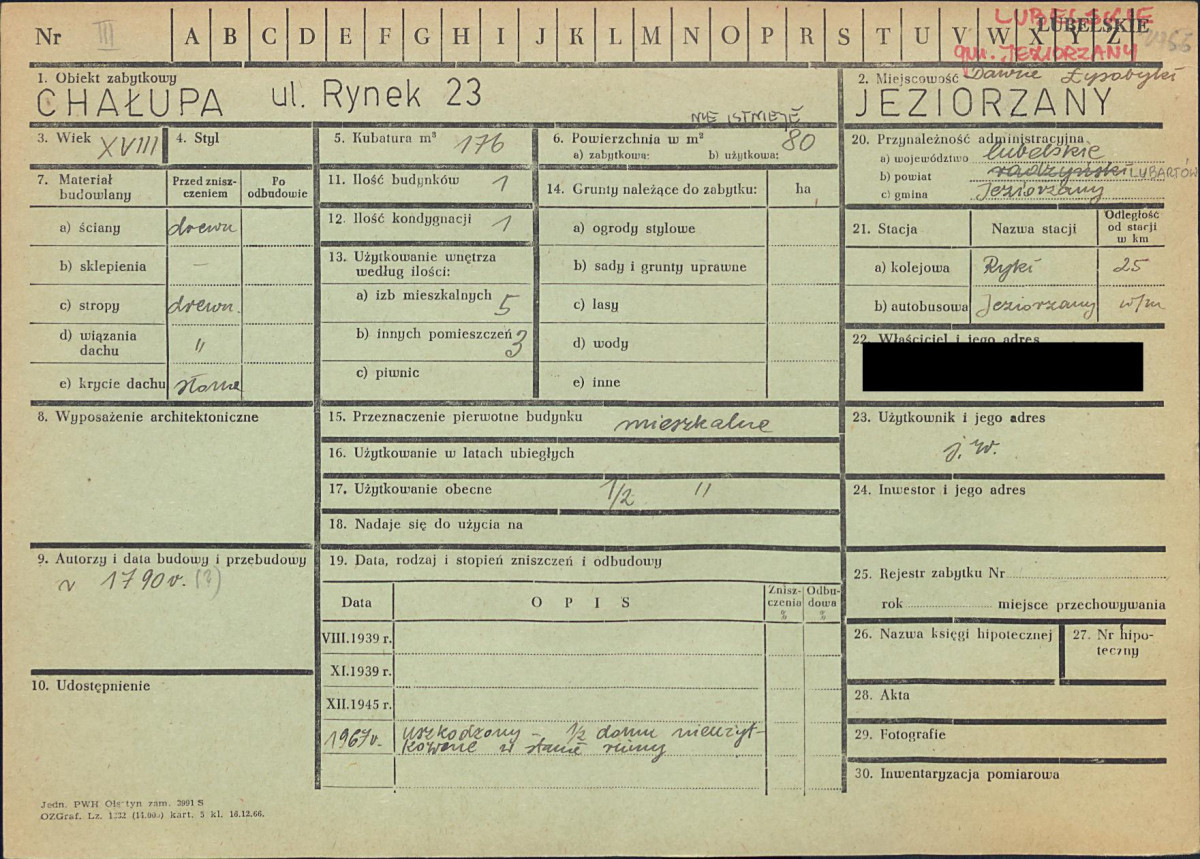 Nr III A B C D E F G H I J K L M N O P R S T U V W X Y Z
LUBELSKIE
LUBELSKIE
gm. JEZIORZANY
1. Obiekt zabytkowy
CHAŁUPA ul. Rynek 23
2. Miejscowość Dawne Łysobyki
JEZIORZANY
NIE ISTNIEJE
3. Wiek XVIII
4. Styl
5. Kubatura m³ 176
6. Powierzchnia w m² 80
a) zabytkowa: b) użytkowa:
7. Materiał budowlany
Przed znisz-
czeniem
Po
odbudowie
a) ściany drewn
b) sklepienia —
c) stropy drewn.
d) wiązania
dachu "
e) krycie dachu słoma
8. Wyposażenie architektoniczne
9. Autorzy i data budowy i przebudowy
1790 r. (?)
10. Udostępnienie
11. Ilość budynków 1
12. Ilość kondygnacji 1
13. Użytkowanie wnętrza
według ilości:
a) izb mieszkalnych 5
b) innych pomieszczeń 3
c) piwnic
14. Grunty należące do zabytku: ha
a) ogrody stylowe
b) sady i grunty uprawne
c) lasy
d) wody
e) inne
15. Przeznaczenie pierwotne budynku mieszkalne
16. Użytkowanie w latach ubiegłych
17. Użytkowanie obecne 1/2 "
18. Nadaje się do użycia na
19. Data, rodzaj i stopień zniszczeń i odbudowy
Data OPIS
Znisz-
czenia
%
Odbu-
dowa
%
VIII.1939 r.
XI.1939 r.
XII.1945 r.
1967 r. uszkodzony - 1/2 domu nieużyt-
kowane w stanie ruiny
20. Przynależność administracyjna
a) województwo lubelskie
b) powiat radzyński LUBARTÓW
c) gmina Jeziorzany
21. Stacja
Nazwa stacji
Odległość
od stacji
w km
a) kolejowa Ryki 25
b) autobusowa Jeziorzany w/m
22. Właściciel i jego adres
23. Użytkownik i jego adres
j. w.
24. Inwestor i jego adres
25. Rejestr zabytku Nr
rok miejsce przechowywania
26. Nazwa księgi hipotecznej
27. Nr hipo-
teczny
28. Akta
29. Fotografie
30. Inwentaryzacja pomiarowa
Jedn. PWH Olsztyn zam. 2991 S
OZGraf. Lz. 1332 (11.000) kart. 5 kl. 16.12.66.